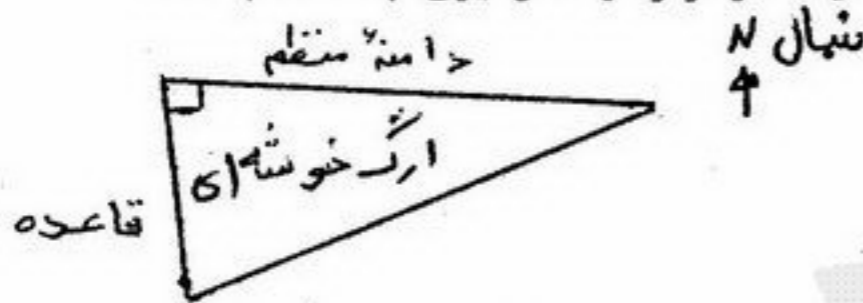 شمال N
دامنهٔ منظم
ارگ خوشه‌ای
قاعده